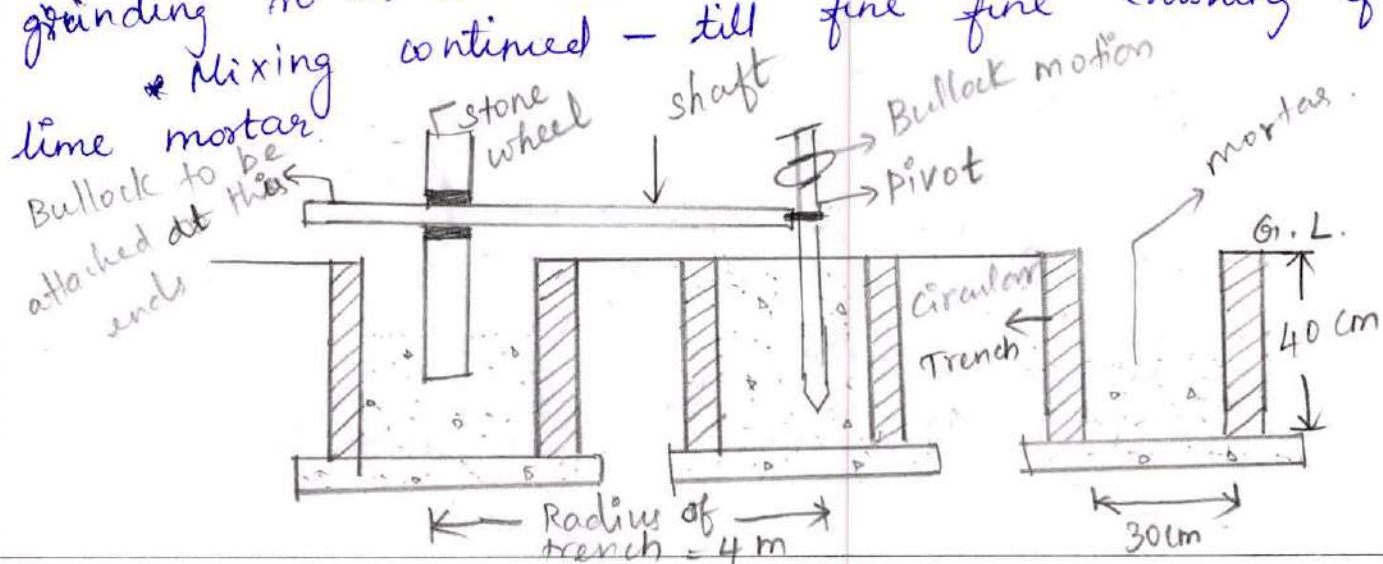 grinding
* Mixing continued - till fine fine crushing of
lime mortar.
Bullock to be
attached at this
ends
stone
wheel
shaft
Bullock motion
pivot
mortar.
G.L.
Circular
Trench
40 cm
Radius of
trench = 4 m
30cm